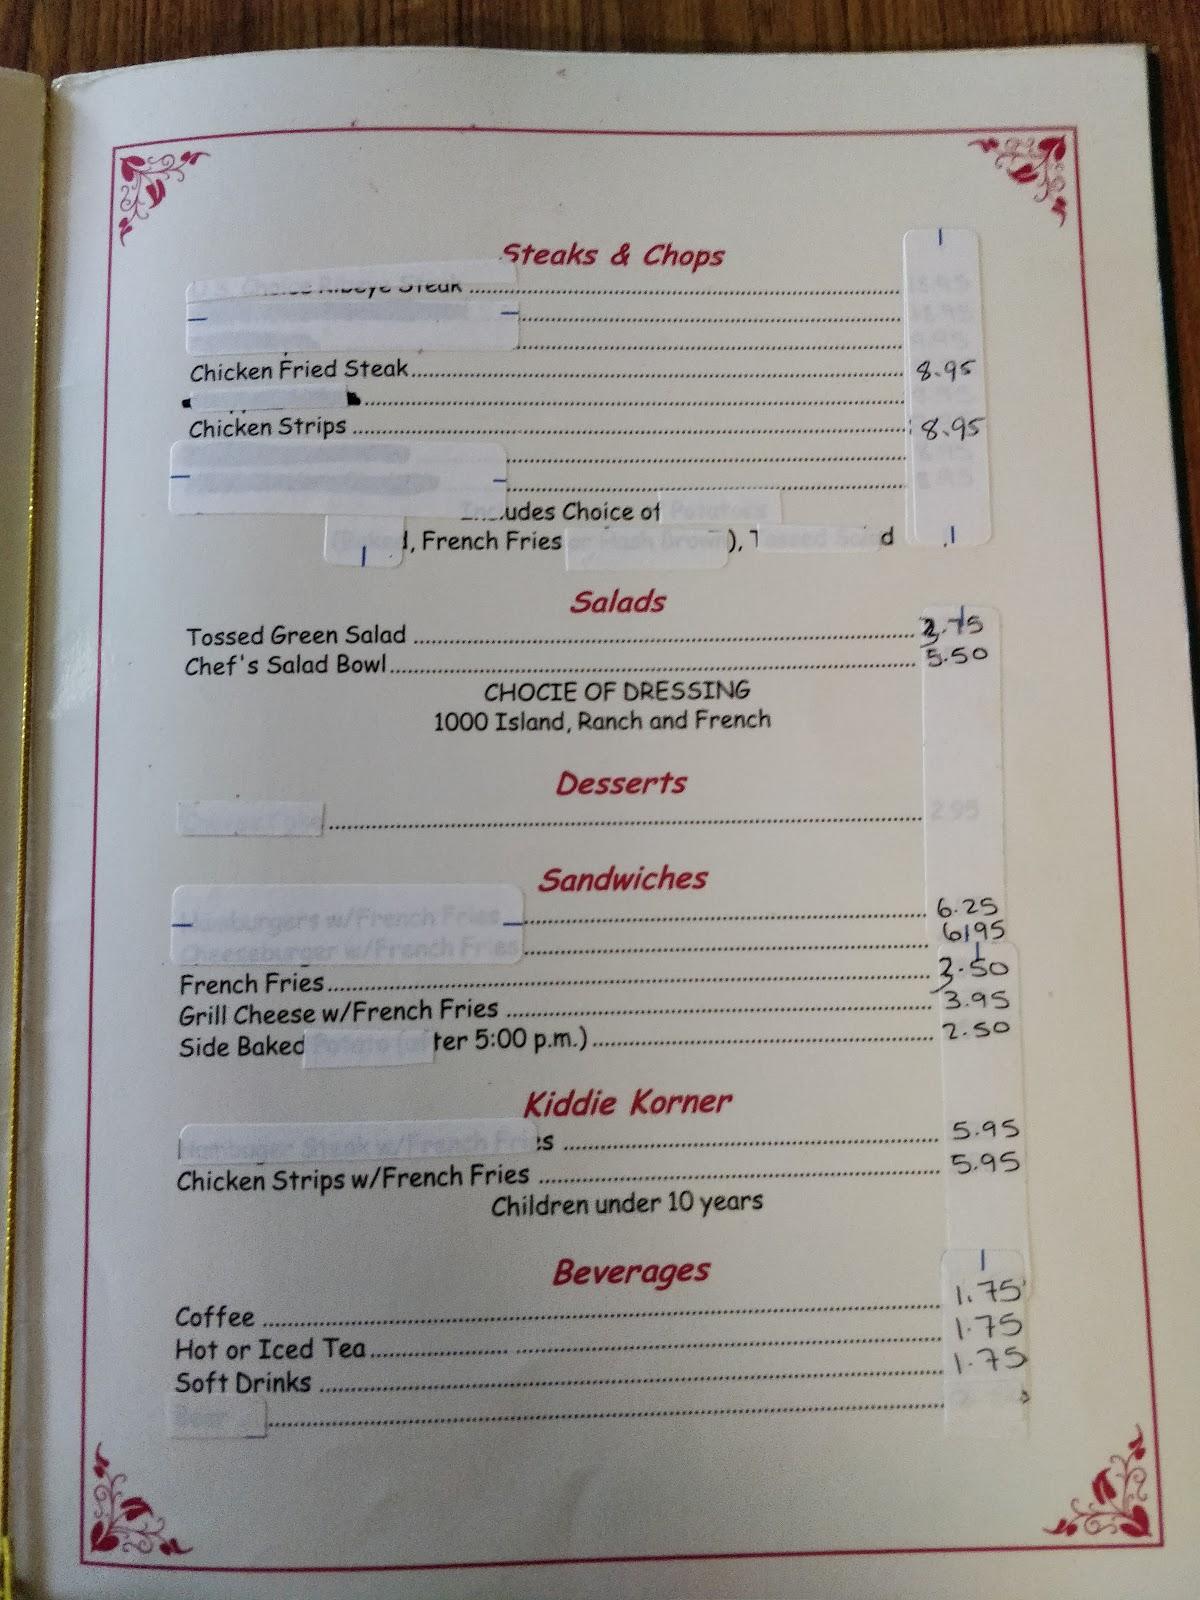 Steaks & Chops
Chicken Fried Steak 8.95
Chicken Strips 8.95
udes Choice of Potatoes
French Fries or Hash Brown), Tossed
Salads
Tossed Green Salad 3.75
Chef's Salad Bowl 5.50
CHOCIE OF DRESSING
1000 Island, Ranch and French
Desserts
2.95
Sandwiches
Hamburgers w/French Fries 6.25
Cheeseburger w/French Fries 6.95
French Fries 3.50
Grill Cheese w/French Fries 3.95
Side Baked Potato (after 5:00 p.m.) 2.50
Kiddie Korner
Hamburger Steak w/French Fries 5.95
Chicken Strips w/French Fries 5.95
Children under 10 years
Beverages
Coffee 1.75
Hot or Iced Tea 1.75
Soft Drinks 1.75
Beer